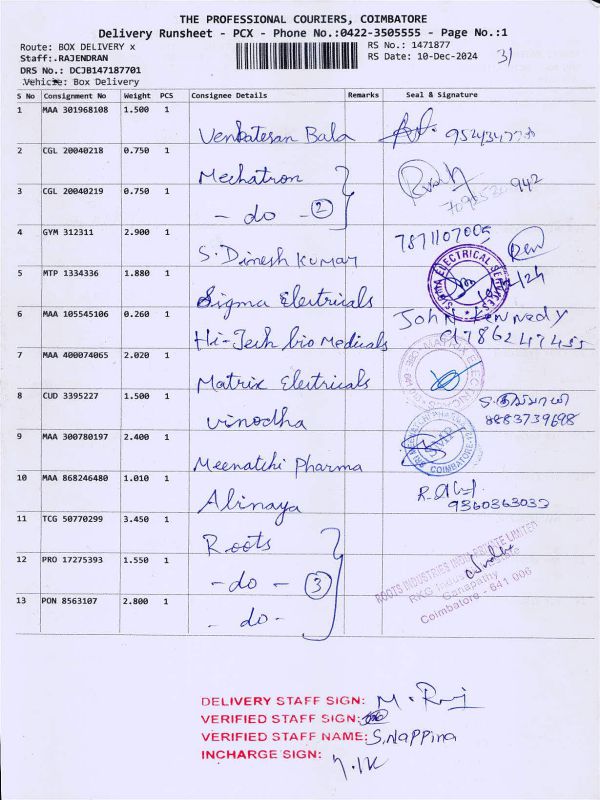 THE PROFESSIONAL COURIERS, COIMBATORE
Delivery Runsheet - PCX - Phone No.:0422-3505555 - Page No.:1
Route: BOX DELIVERY x
RS No.: 1471877
Staff:.RAJENDRAN
RS Date: 10-Dec-2024 31
DRS No.: DCJB147187701
.Vehicle: Box Delivery
S No Consignment No Weight PCS Consignee Details Remarks Seal & Signature
1 MAA 301968108 1.500 1 Venkatesan Bala
2 CGL 20040218 0.750 1 Mechatron
3 CGL 20040219 0.750 1 - do - 2
4 GYM 312311 2.900 1 S. Dinesh Kumar
5 MTP 1334336 1.880 1 Sigma Electricals SIGMA ELECTRICAL SERVICES
6 MAA 105545106 0.260 1 Hi-Tech bio Medicals John Kennedy
7 MAA 400074065 2.020 1 Matrix Electricals
8 CUD 3395227 1.500 1 Vinodha 8883739698
9 MAA 300780197 2.400 1 Meenatchi Pharma COIMBATORE
10 MAA 868246480 1.010 1 Abinaya 9360363032
11 TCG 50770299 3.450 1 Roots
12 PRO 17275393 1.550 1 - do - 3
13 PON 8563107 2.800 1 - do -
ROOTS INDUSTRIES INDIA PRIVATE LIMITED
RKG Industrial Estate
Ganapathy
Coimbatore - 641 006
DELIVERY STAFF SIGN: M. Raj
VERIFIED STAFF SIGN:
VERIFIED STAFF NAME: S. Nappina
INCHARGE SIGN: